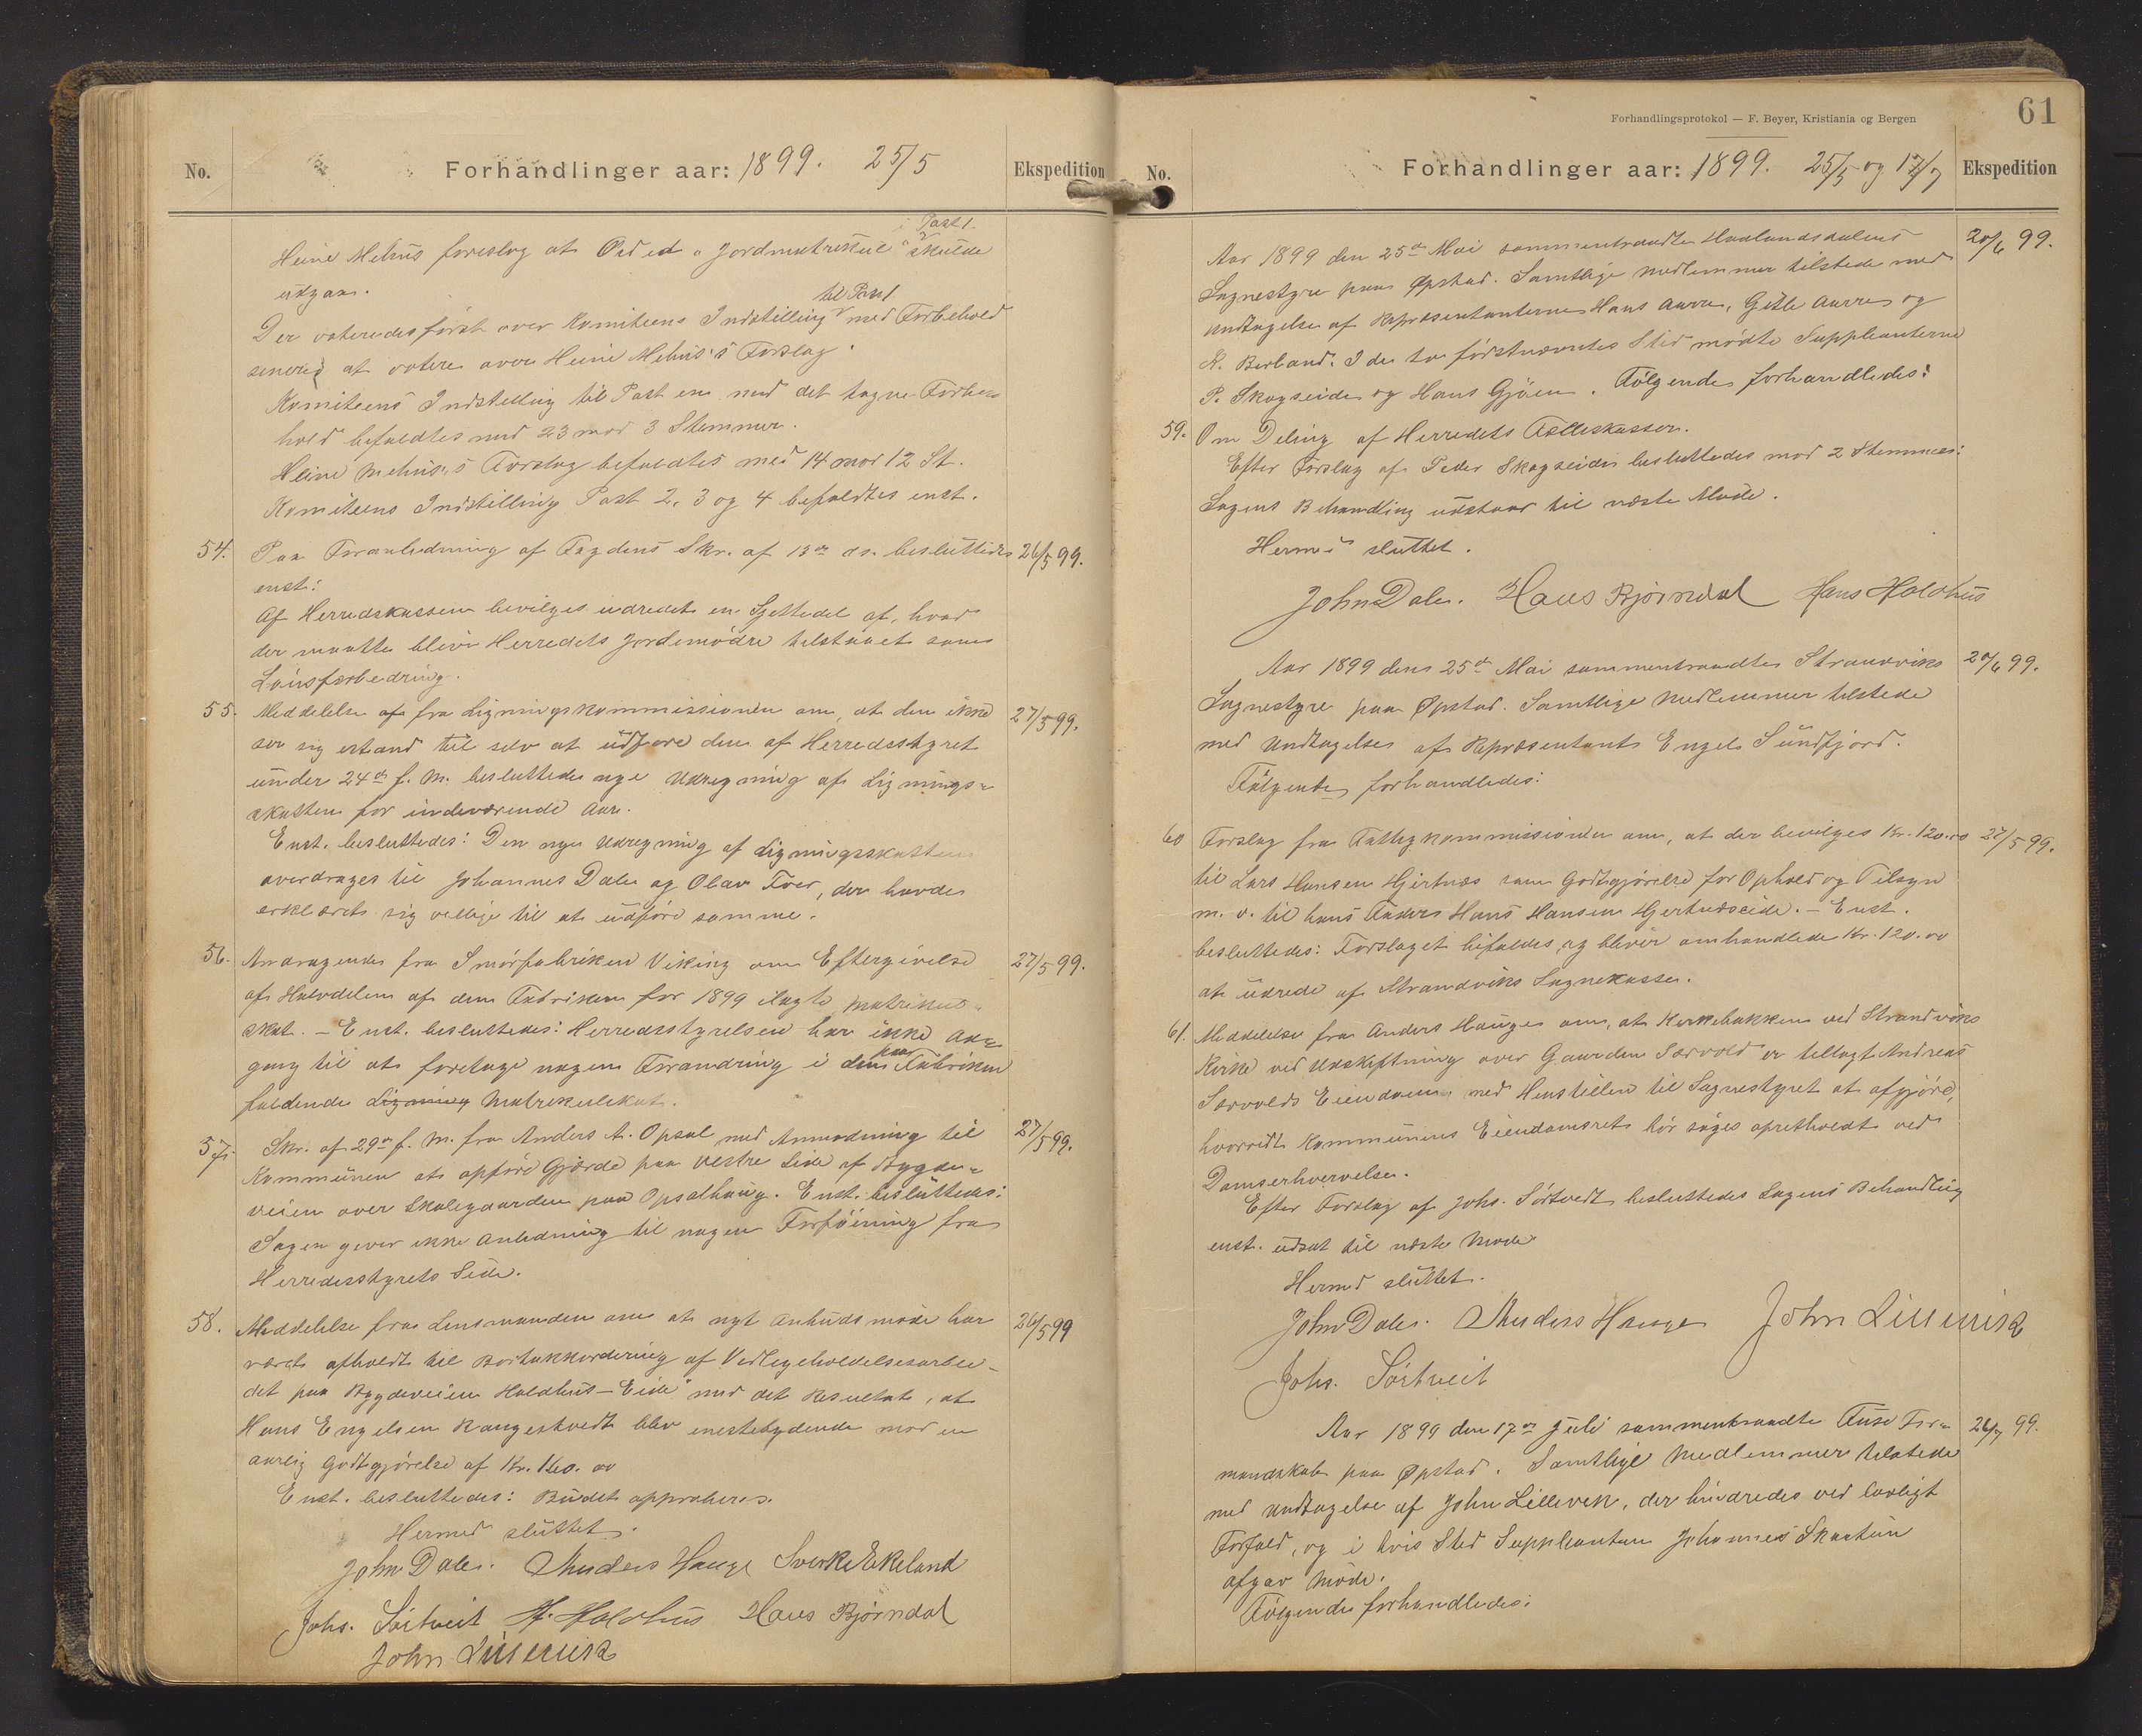 No.
Forhandlinger aar: 1899. 25/5
Ekspedition
i Post 1.
Heine Mehus foreslog at Ordet "Jordmatrikul" skulde
udgaa.
til Post 1
Der voteredes først over Komiteens Indstilling med Forbehold
senere at votere over Heine Mehus's Forslag.
Komiteens Indstilling til Post en med det tagne Forbe-
hold bifaldtes med 23 mod 3 Stemmer.
Heine Mehus's Forslag bifaldtes med 14 mod 12 St.
Komiteens Indstilling Post 2, 3 og 4 bifaldtes enst.
54. Paa Foranledning af Fogdens Skr. af 13de ds. besluttedes 26/5 99.
enst:
Af Herredskassen bevilges udredet en Sjettedel af, hvad
der maatte blive Herredets Jordemødre tilstaaet som
Lønsforbedring.
55. Meddelelse af fra Ligningskommissionen om, at den ikke 27/5 99.
ser sig istand til selv at udføre den af Herredsstyret
under 24de f. M. besluttede nye Udregning af Lignings-
skatten for indeværende Aar.
Enst. besluttedes: Den nye Udregning af Ligningsskatten
overdrages til Johannes Dale og Olav Tver, der havde
erklæret sig villige til at udføre samme.
56. Andragende fra Smørfabriken Viking om Eftergivelse 27/5 99.
af Halvdelen af den Fabriken for 1899 ilagte Matrikul-
skat. - Enst. besluttedes: Herredsstyrelsen har ikke Ad-
gang til at foretage nogen Forandring i den paa Fabriken
faldende Ligning Matrikulskat.
57. Skr. af 29de f. M. fra Anders A. Opsal med Anmodning til 27/5 99.
Kommunen at opføre Gjærde paa vestre Side af Bygde-
veien over Skolegaarden paa Opsalhaug. Enst. besluttedes:
Sagen giver ikke Anledning til nogen Forføining fra
Herredsstyrets Side.
58. Meddelelse fra Lensmanden om at nyt Anbudsmøde har 26/5 99
været afholdt til Bortakkordering af Vedligeholdelsesarbei-
det paa Bygdeveien Holdhus-Eide med det Resultat, at
Hans Engelsen Rangestvedt blev enestebydende mod en
aarlig Godtgjørelse af Kr. 160.00
Enst. besluttedes: Budet approberes.
Hermed sluttet.
John Dale. Anders Hauge Sverke Ekeland
Johs. Sörtveit H. Holdhus Hans Bjørndal
John Lillevik
Forhandlingsprotokol — F. Beyer, Kristiania og Bergen
61
No.
Forhandlinger aar: 1899. 25/5 og 17/7
Ekspedition
Aar 1899 den 25de Mai sammentraadte Haalandsdalens 20/6 99.
Sognestyre paa Øpstad. Samtlige Medlemmer tilstede med
Undtagelse af Repræsentanterne Hans Aarre, Gitle Aarre og
N. Berland. I de to førstnævntes Sted mødte Suppleanterne
P. Skogseide og Hans Gjøen. Følgende forhandledes:
59. Om Deling af Herredets Fælleskasser.
Efter Forslag af Peder Skogseide besluttedes mod 2 Stemmer:
Sagens Behandling udstaar til næste Møde.
Hermed sluttet.
John Dale. Hans Bjørndal Hans Holdhus
Aar 1899 den 25de Mai sammentraadte Strandviks 20/6 99.
Sognestyre paa Øpstad. Samtlige Medlemmer tilstede
med Undtagelse af Repræsentant Engel Sundfjord.
Følgende forhandledes:
60 Forslag fra Fattigkommissionen om, at der bevilges Kr. 120.00 27/5 99.
til Lars Hansen Hjertnæs som Godtgjørelse for Ophold og Tilsyn
m. v. til hans Fader Hans Hansen Hjertnæseide. - Enst.
besluttedes: Forslaget bifaldes og bliver omhandlede Kr. 120.00
at udrede af Strandviks Sognekasse.
61. Meddelelse fra Anders Hauge om, at Kirkebakken ved Strandviks
Kirke ved Udskiftning over Gaarden Sævold er tillagt Andreas
Sævolds Eiendom, med Henstillen til Sognestyret at afgjøre,
hvorvidt Kommunens Eiendomsret bør søges opretholdt ved
Domserhvervelse.
Efter Forslag af Johs. Sørtvedt besluttedes Sagens Behandling
enst. udsat til næste Møde
Hermed sluttet.
John Dale. Anders Hauge John Lillevik
Johs. Sörtveit
Aar 1899 den 17de Juli sammentraadte Fuse For- 26/7 99.
mandskab paa Øpstad. Samtlige Medlemmer tilstede
med Undtagelse af John Lillevik, der hindredes ved lovligt
Forfald, og i hvis Sted Suppleanten Johannes Skaatun
afgav Møde.
Følgende forhandledes: